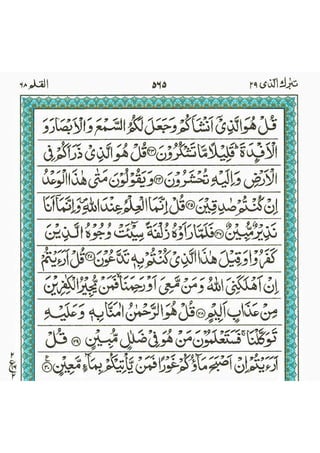 تبٰرك الذی ٢٩ ٥٦٥ القلم ٦٨
قُلْ هُوَ الَّذِیْۤ اَنْشَاَكُمْ وَجَعَلَ لَكُمُ السَّمْعَ وَالْاَبْصَارَ وَ
الْاَفْـِٕدَةَ ؕ قَلِیْلًا مَّا تَشْكُرُوْنَ ﴿٢٣﴾ قُلْ هُوَ الَّذِیْ ذَرَاَكُمْ فِی
الْاَرْضِ وَاِلَیْهِ تُحْشَرُوْنَ ﴿٢٤﴾ وَیَقُوْلُوْنَ مَتٰی هٰذَا الْوَعْدُ
اِنْ كُنْتُمْ صٰدِقِیْنَ ﴿٢٥﴾ قُلْ اِنَّمَا الْعِلْمُ عِنْدَ اللّٰهِ ۪ وَاِنَّمَاۤ اَنَا
نَذِیْرٌ مُّبِیْنٌ ﴿٢٦﴾ فَلَمَّا رَاَوْهُ زُلْفَةً سِیْٓـَٔتْ وُجُوْهُ الَّذِیْنَ
كَفَرُوْا وَقِیْلَ هٰذَا الَّذِیْ كُنْتُمْ بِهٖ تَدَّعُوْنَ ﴿٢٧﴾ قُلْ اَرَءَیْتُمْ
اِنْ اَهْلَكَنِیَ اللّٰهُ وَمَنْ مَّعِیَ اَوْ رَحِمَنَا ۙ فَمَنْ یُّجِیْرُ الْكٰفِرِیْنَ
مِنْ عَذَابٍ اَلِیْمٍ ﴿٢٨﴾ قُلْ هُوَ الرَّحْمٰنُ اٰمَنَّا بِهٖ وَعَلَیْهِ
تَوَكَّلْنَا ۚ فَسَتَعْلَمُوْنَ مَنْ هُوَ فِیْ ضَلٰلٍ مُّبِیْنٍ ﴿٢٩﴾ قُلْ
اَرَءَیْتُمْ اِنْ اَصْبَحَ مَآؤُكُمْ غَوْرًا فَمَنْ یَّاْتِیْكُمْ بِمَآءٍ مَّعِیْنٍ ﴿٣٠﴾